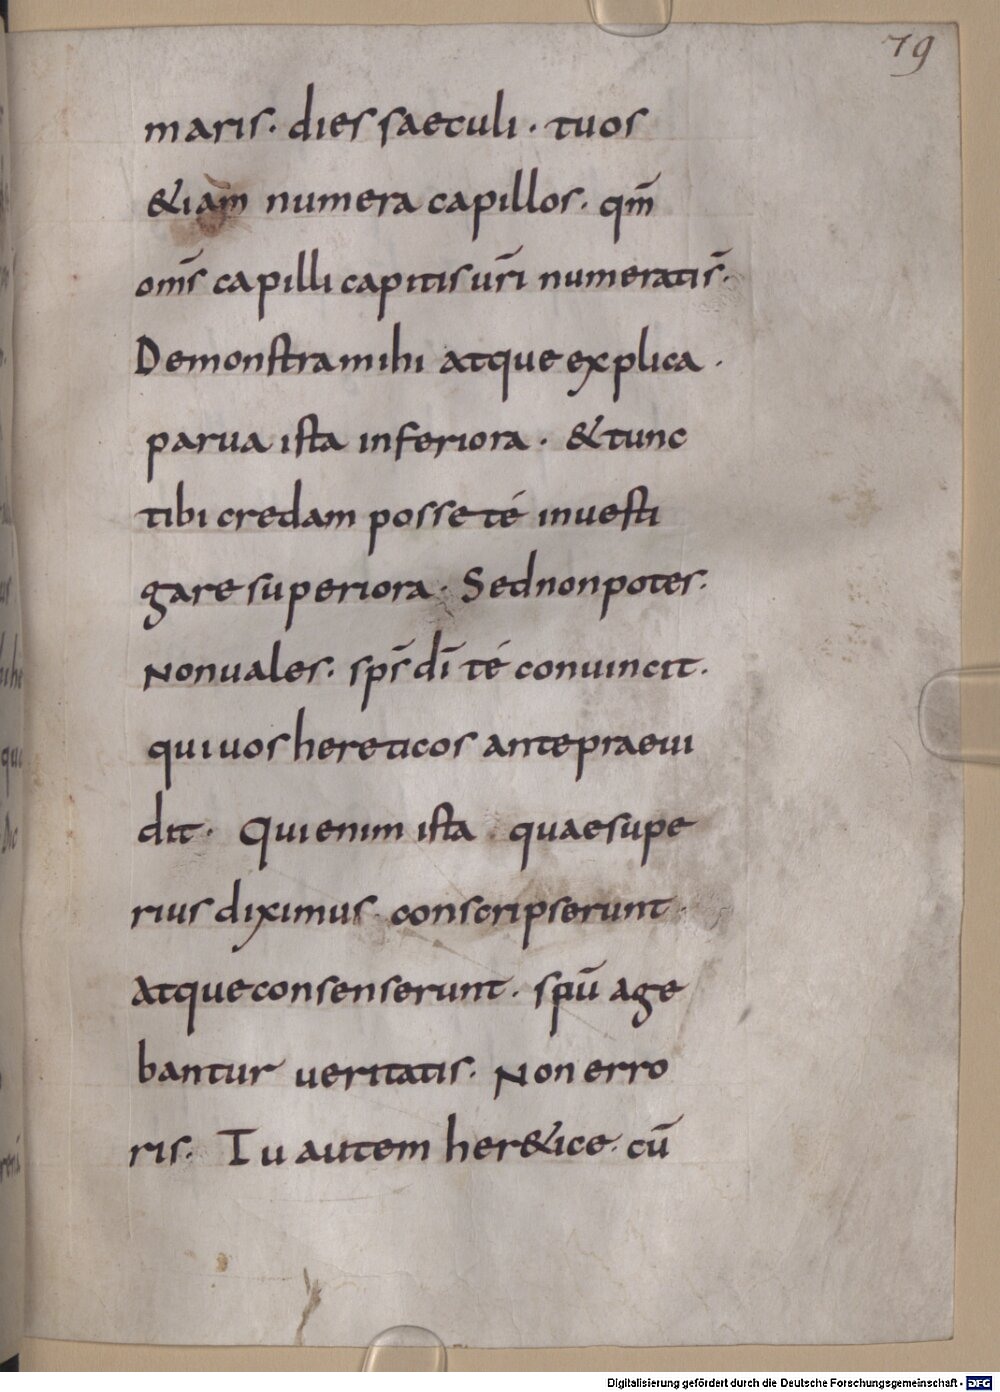 79
maris. dies saeculi. tuos
&iam numera capillos. qm̄
om̄s capilli capitis ur̄i numeratis̄.
Demonstra mihi atque explica.
parua ista inferiora. & tunc
tibi credam posse té inuesti
gare superiora. Sed non potes.
Non uales. sps̄ dī té conuincit.
qui uos hereticos ante praeui
dit. Qui enim ista quae supe
rius diximus. conscripserunt.
atque consenserunt. spū age
bantur ueritatis. Non erro
ris. Tu autem her&ice. cū
Digitalisierung gefördert durch die Deutsche Forschungsgemeinschaft - DFG